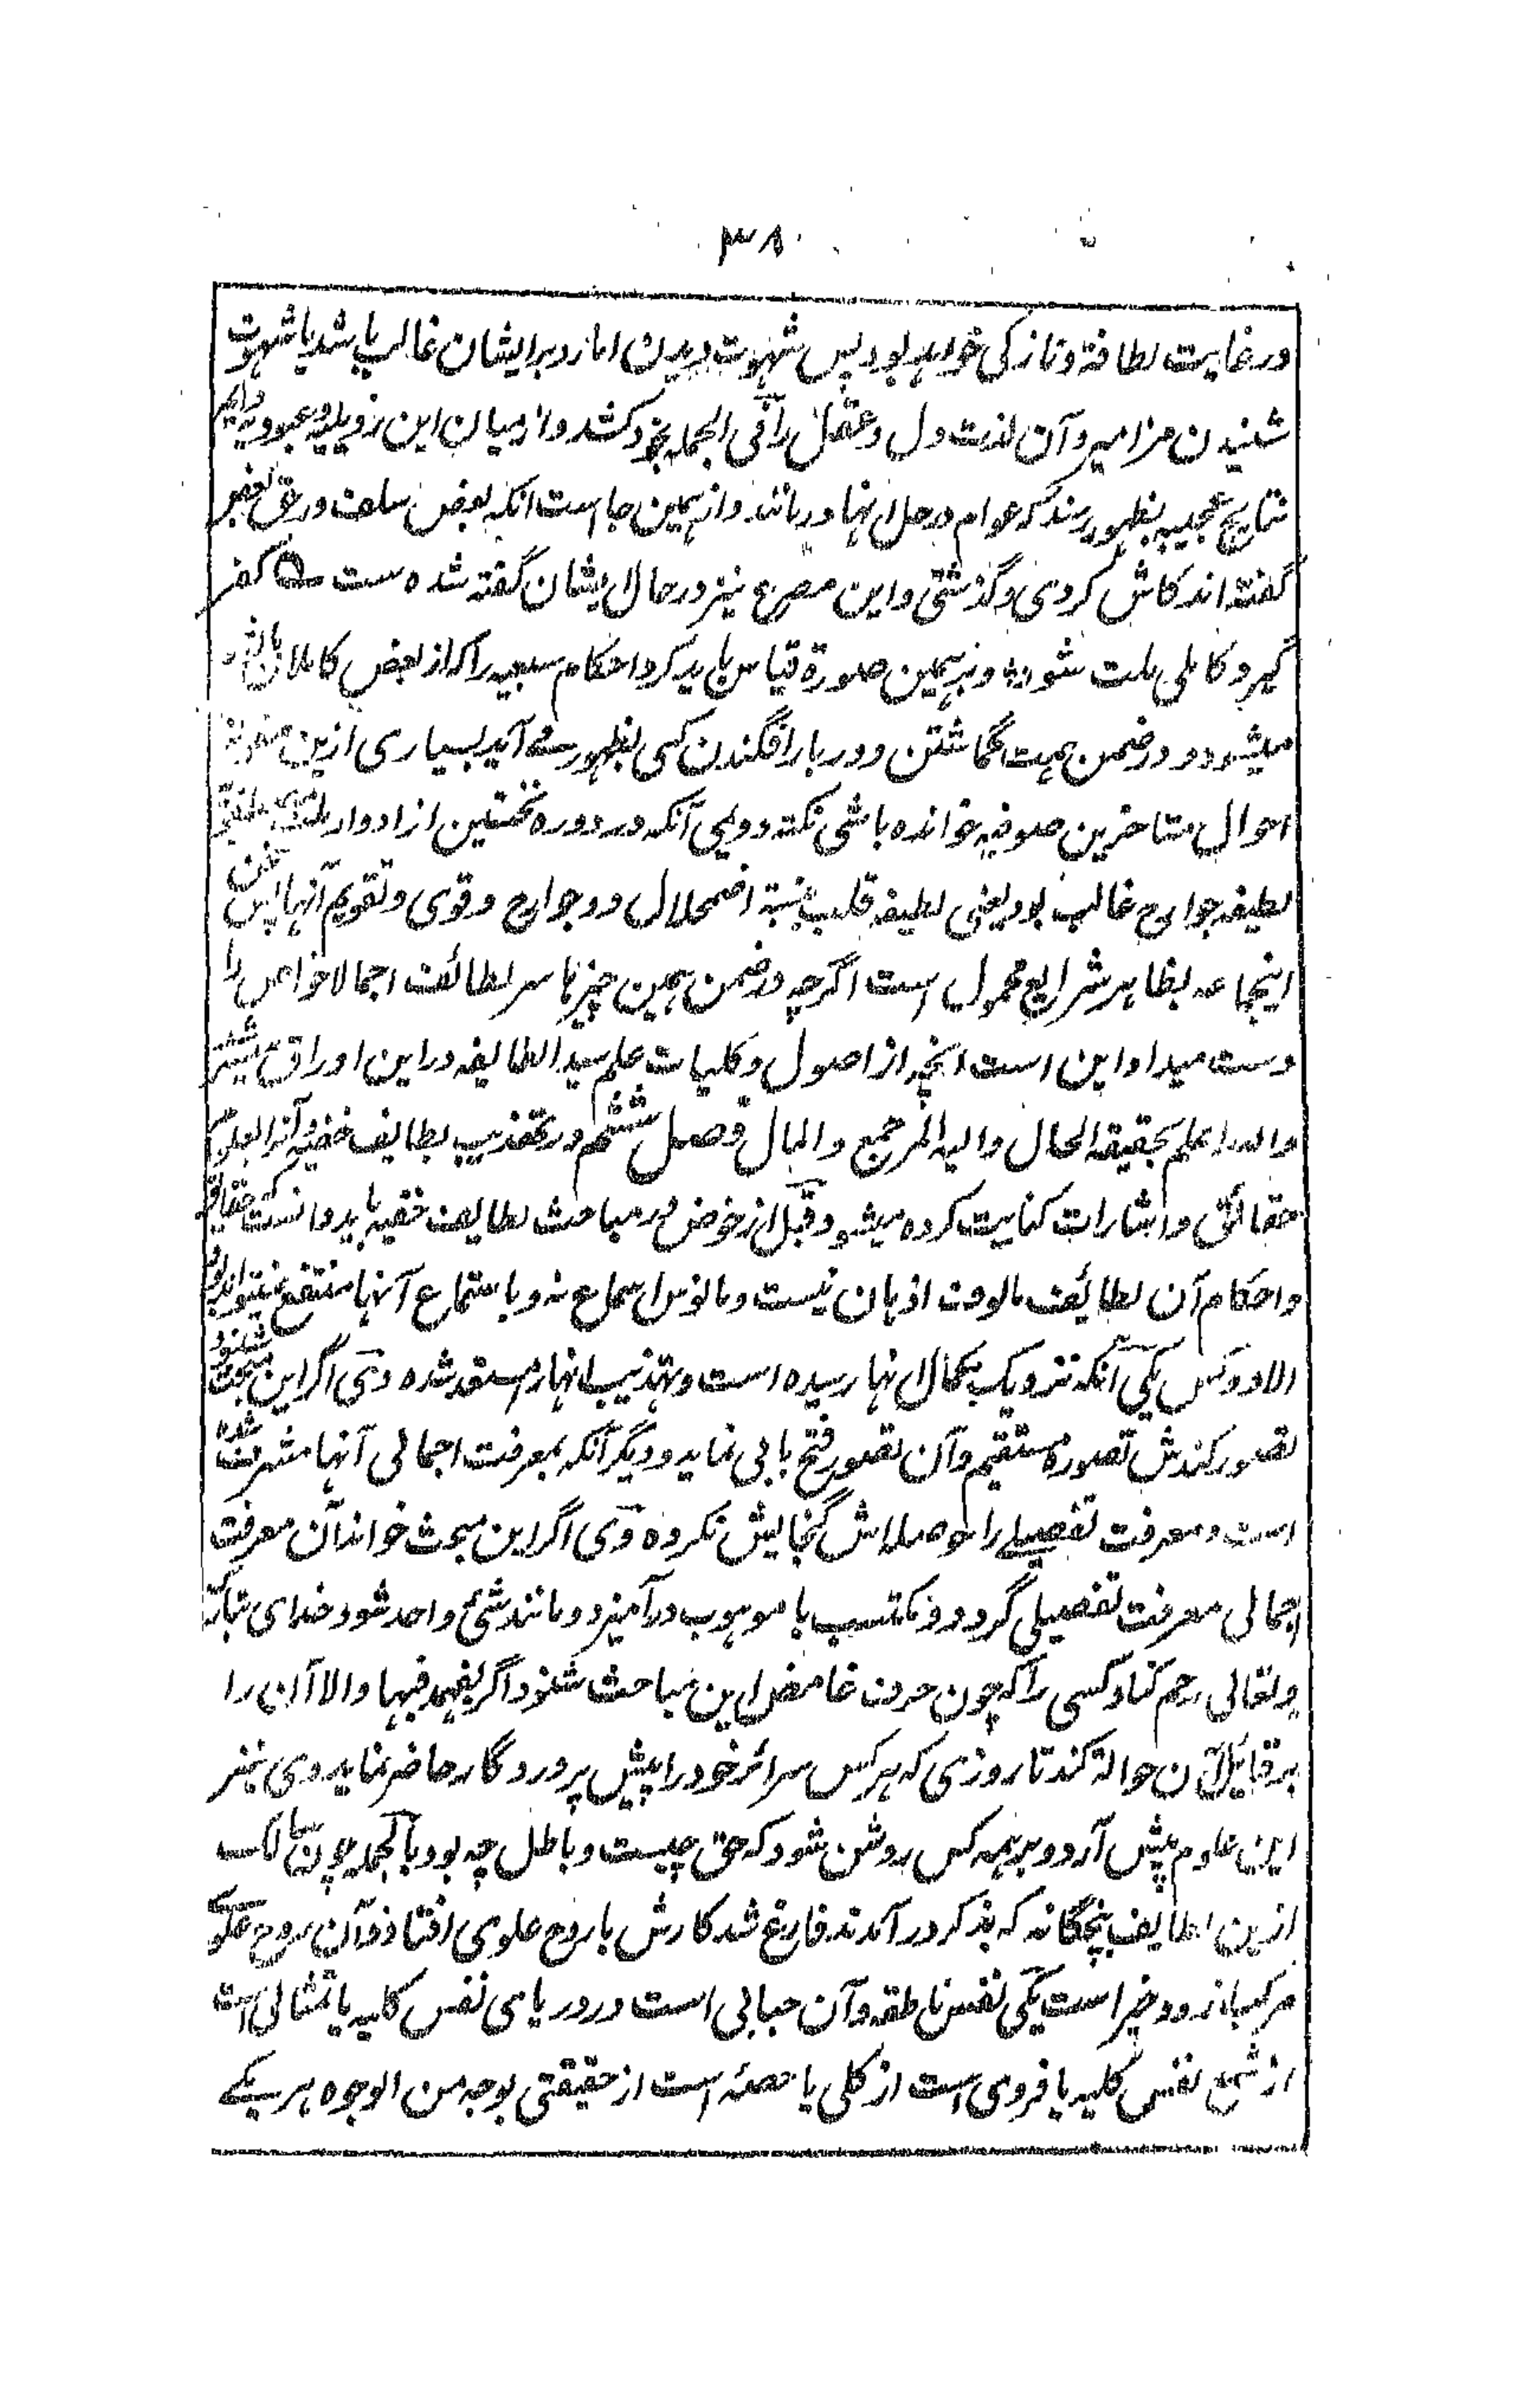 ۳۸
در غایت لطافة و نازکی خواهد بود پس شهوت دیدن امارد بر ایشان غالب باشد یا شهوت
شنیدن مزامیر و آن لذت دل و عقل را فی الجمله بخود کشد و از میان این رذیله و عبودیه دایم
نتایج عجیبه بظهور رسند که عوام در حل انها درمانند و از همین جا است انکه بعض سلف در حق بعضی
گفته اند کاش کردی و گذشتی و این مصرع نیز در حال ایشان گفته شده ست ــه کفر
گیرد کاملی ملت شود و برهمین صورة قیاس باید کرد احکام سبعیه را که از بعض کاملان
میشود و در ضمن همت گماشتن و در بار افگندن کسی بظهور می آید بسیاری ازین
احوال متاخرین صوفیه خوانده باشی نکته دویمی آنکه در دوره نخستین از ادوار
لطیفه جوارح غالب بود یعنی لطیفه قلب بنسبة اضمحلال در جوارح و قوی و تقویم آنها پس سخن
اینجماعه بظاهر شرایع محمول است اگرچه در ضمن همین چیزها سر لطائف اجمالا خواص را
دست میداد این است انچه از اصول و کلیات علم سید الطایفه در این اوراق
والله اعلم بحقیقة الحال والیه المرجع والمآل فصل ششم در تهذیب لطایف خفیه و آنرا بعلوم
حقائق و اشارات کنایت کرده میشود قبل از خوض در مباحث لطایف خفیه باید دانست که حقایق
و احکام آن لطائف مالوف اذهان نیست و مانوس اسماع نه و باستماع آنها منتفع نمیتواند بود
الا دو کس یکی آنکه نزدیک بکمال انها رسیده است و تهذیب انها را مستعد شده وی اگر این مبحث شنود
تصور کندش تصوره مستقیم و آن تصور فتح بابی نماید و دیگر آنکه بمعرفت اجمالی آنها مشرف شده
است و معرفت تفصیلے را حوصله اش گنجایش نکرده وی اگر این مبحث خواند آن معرفت
اجمالی معرفت تفصیلی گردد و مکتسب با موهوب درآمیزد و مانند شئ واحد شود خدای تبارک
و تعالی رحم کناد کسی را که چون حرف غامض این مباحث شنود اگر بفهمد فبها والا آن را
بر قایل آن حوالة کند تا روزی که هر کس سرائر خود را پیش پروردگار حاضر نماید وی نیز
این علوم پیش آرد و بر همه کس روشن شود که حق چیست و باطل چه بود بالجمله چون سالک
ازین لطایف پنجگانه که بذکر درآمدند فارغ شد کارش با روح علوی افتاد و آن روح علوی
مرکب از دو جزاست یکی نفس ناطقه و آن حبابی است در دریای نفس کلیه یا تمثالی است
از شمع نفس کلیه یا فردی است از کلی یا حصئه است از حقیقتی بوجه من الوجوه هر یکے